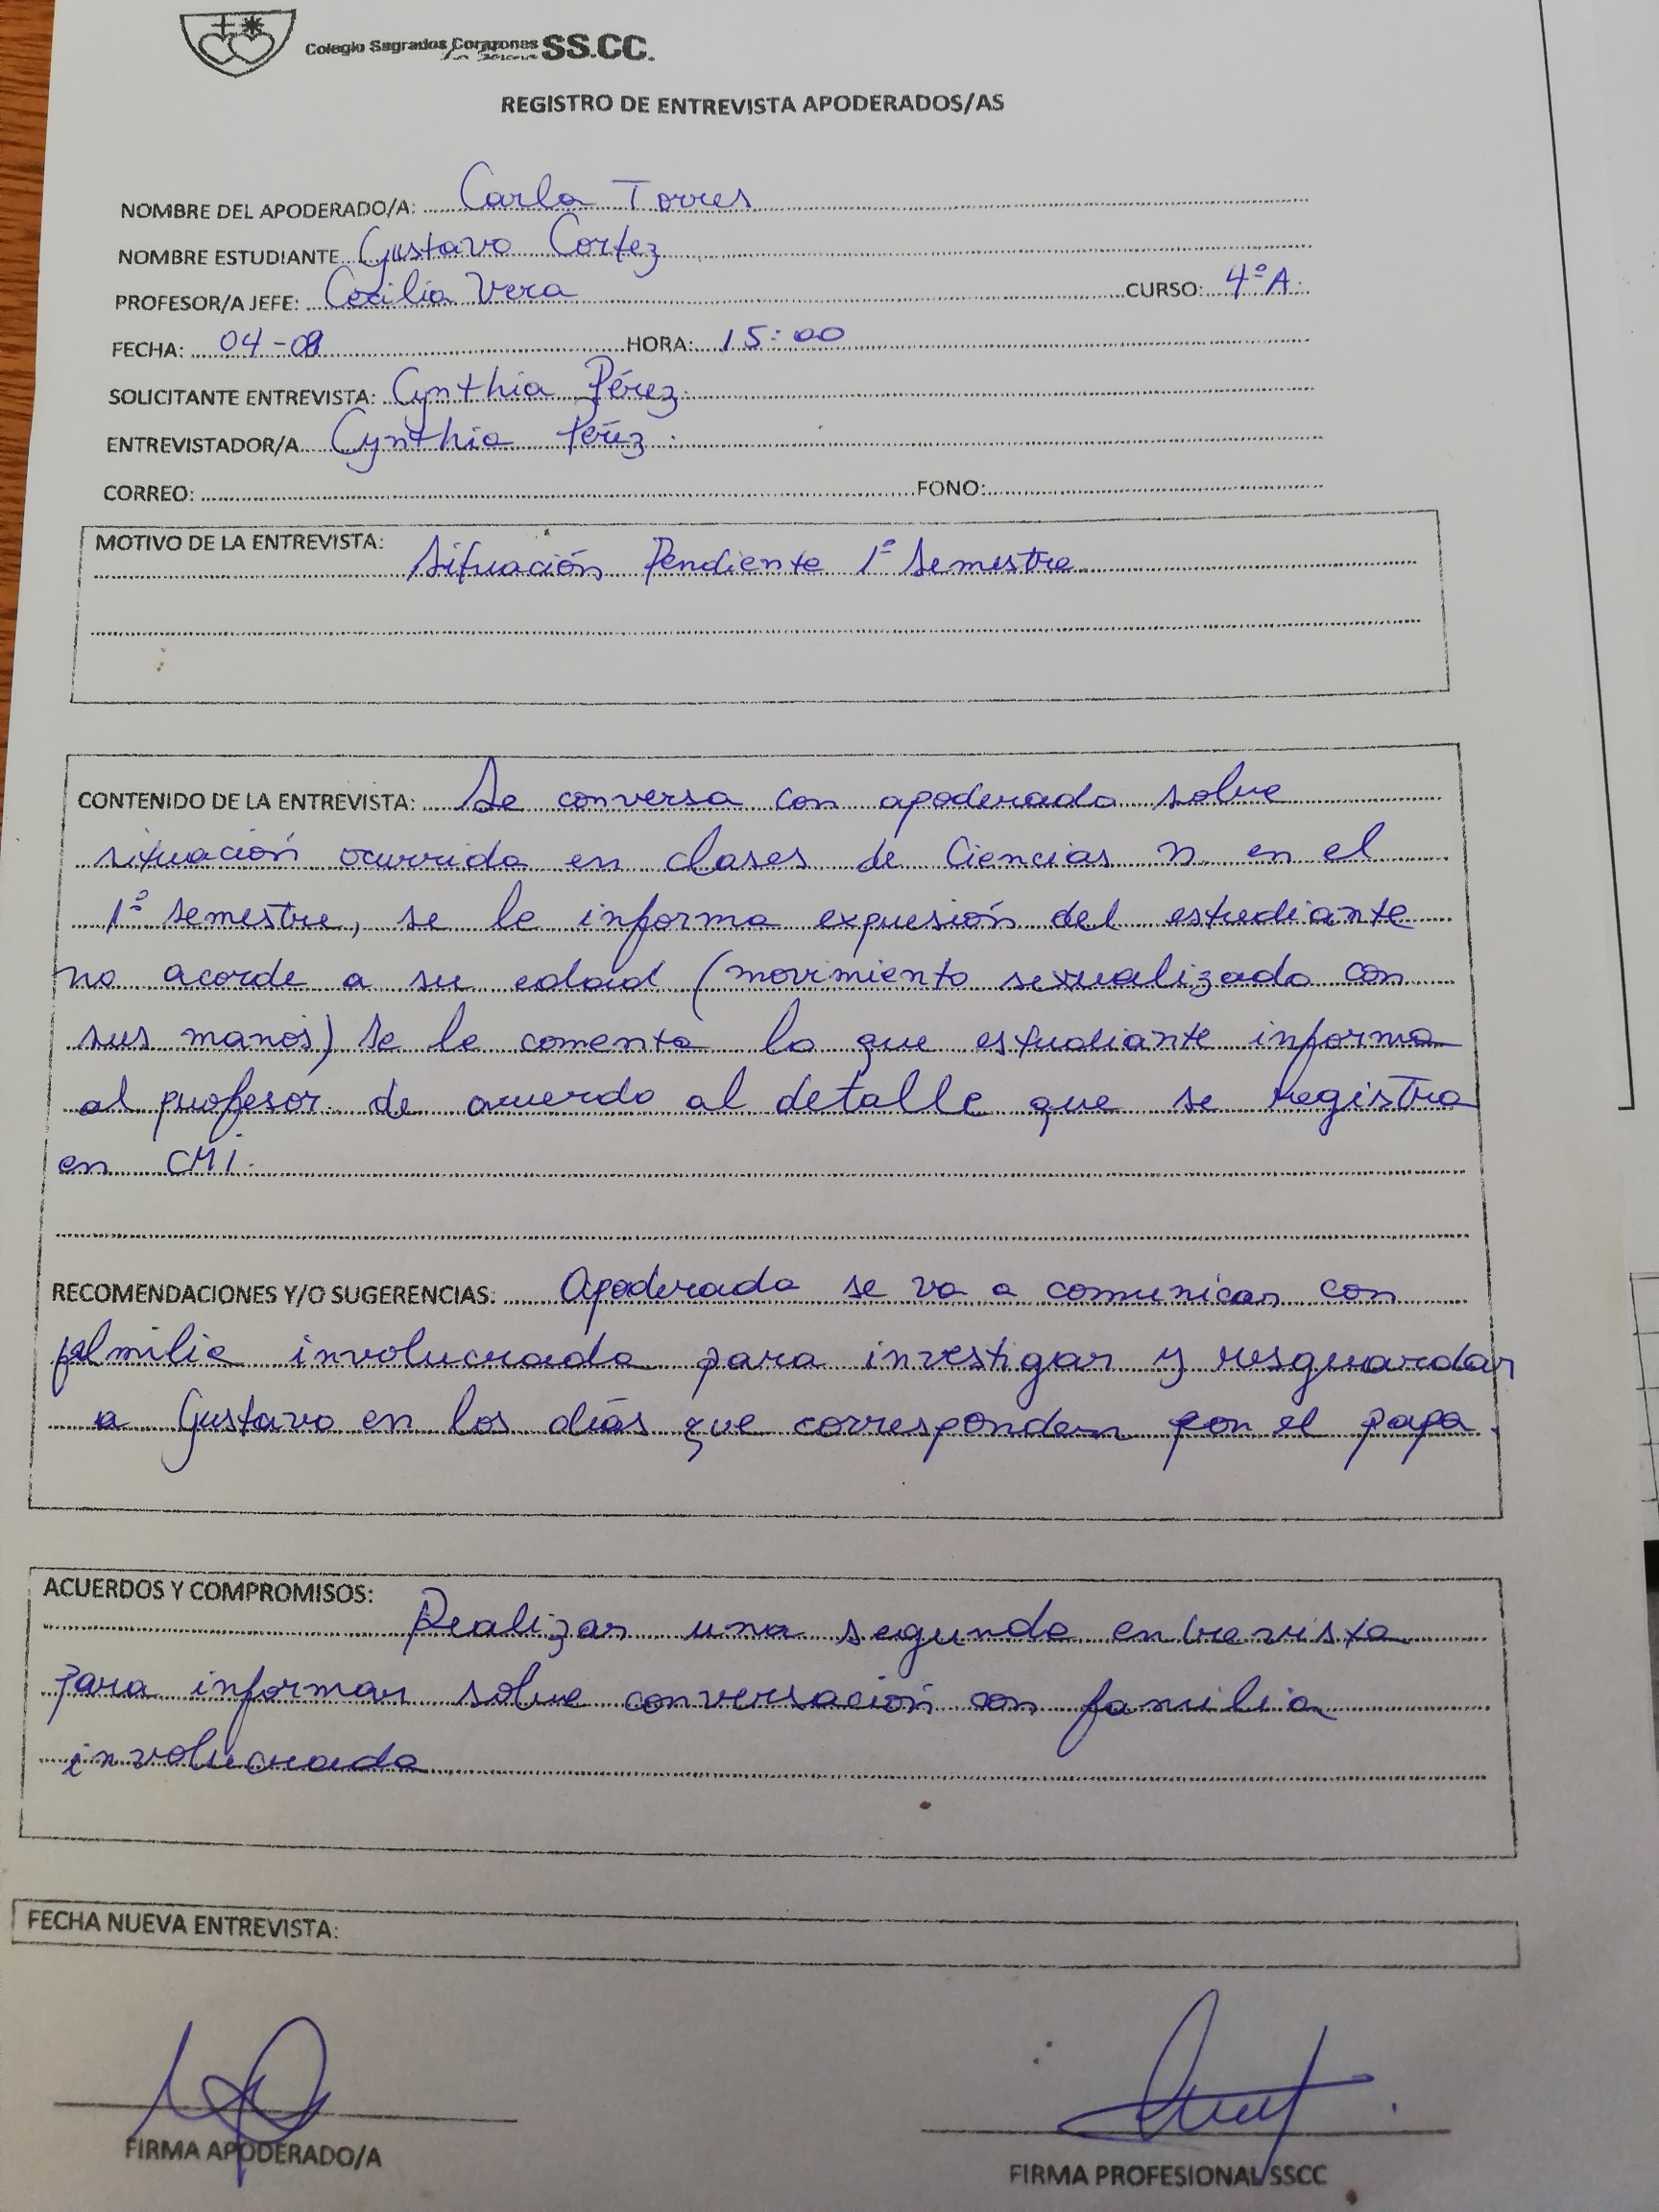 Colegio Sagrados Corazones SS.CC.
REGISTRO DE ENTREVISTA APODERADOS/AS
NOMBRE DEL APODERADO/A: Carla Torres
NOMBRE ESTUDIANTE Gustavo Cortez
PROFESOR/A JEFE: Cecilia Vera CURSO: 4º A
FECHA: 04-08 HORA: 15:00
SOLICITANTE ENTREVISTA: Cynthia Pérez
ENTREVISTADOR/A Cynthia Pérez
CORREO: FONO:
MOTIVO DE LA ENTREVISTA:
Situación Pendiente 1º Semestre
CONTENIDO DE LA ENTREVISTA: Se conversa con apoderada sobre
situación ocurrida en clases de Ciencias N. en el
1º semestre, se le informa expresión del estudiante
no acorde a su edad (movimiento sexualizado con
sus manos) se le comenta lo que estudiante informa
al profesor de acuerdo al detalle que se registra
en CMI.
RECOMENDACIONES Y/O SUGERENCIAS. Apoderada se va a comunicar con
familia involucrada para investigar y resguardar
a Gustavo en los días que corresponden con el papa.
ACUERDOS Y COMPROMISOS:
Realizar una segunda entrevista
para informar sobre conversación con familia
involucrada
FECHA NUEVA ENTREVISTA:
FIRMA APODERADO/A
FIRMA PROFESIONAL SSCC